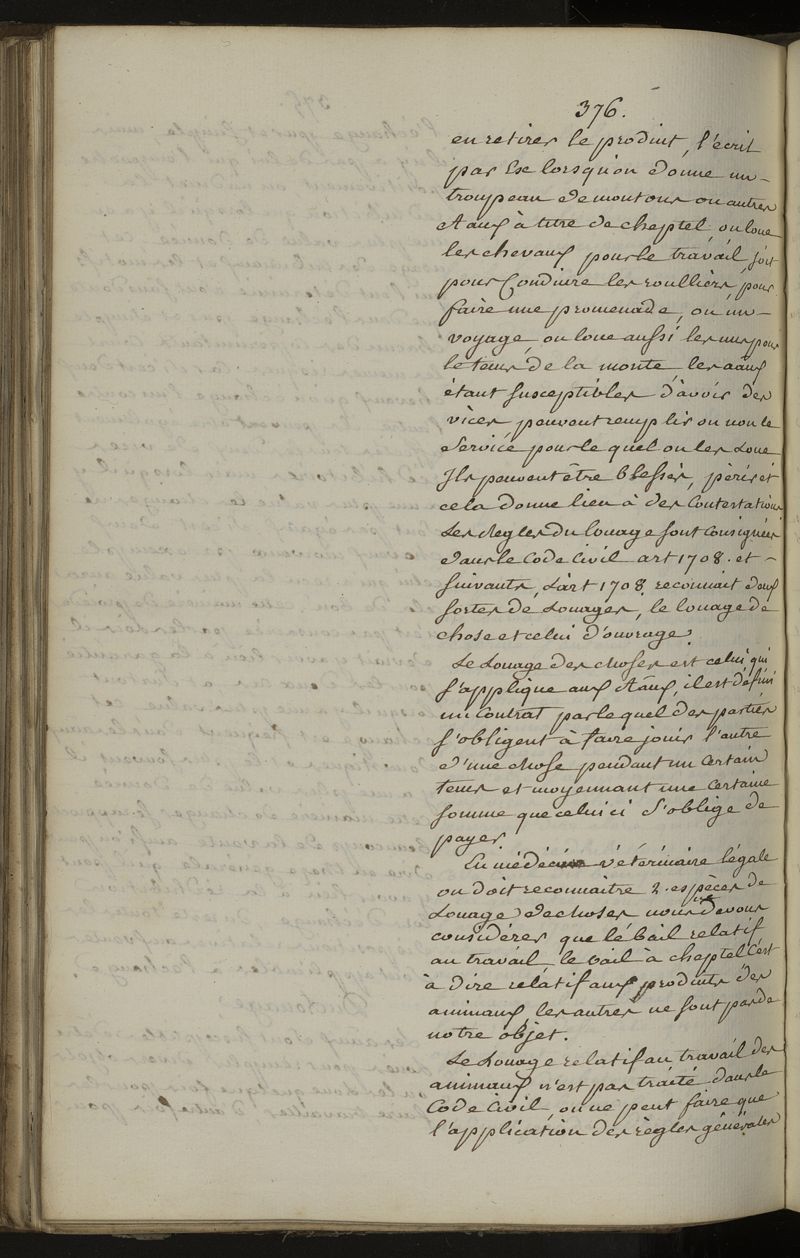 376.
en retirer le produit, l'écrit
par Ex lorsqu'on donne un –
troupeau de moutons ou autres
aaux à titre de cheptel, on loue
les chevaux pour le travail, soit
pour Conduire les roullièrs, pour
faire une promenade, ou un –
voyage, on loue aussi les uns pour
le tems de la monte, les aaux
étant susceptibles d'avoir des
vices peuvent remplir ou non le
Service pour le quel on les Loue
Ils peuvent être blessés, périr et
cela donne lieu à des Contestations
Les Regles du louage sont Consignées
dans le Code Civil art 1708. et –
suivants, L'art 1708 reconnait deux
sortes de Louages, le louage de
chose et celui d'ouvrage.
Le Louage des choses est celui qui
s'applique aux Aaux, il est défini
un Contrat par le quel des parties
s'obligent à faire jouir l'autre
d'une chose pendant un Certain
tems et moyennant une Certaine
somme que celui ci S'oblige de
payer.
En médécine vétérinaire légale
on doit reconnaitre 2. espèces de
Louage de choses nous devons
considérer que le bail relatif
au travail, le bail à cheptel C'est
à dire relatif aux produits des
animaux, les autres ne sont pas de
notre objet.
Le Louage relatif au travail des
animaux n'est pas traité dans le
Code Civil, on ne peut faire que
l'application des règles générales